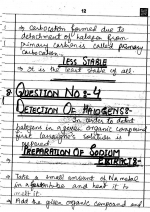 12
→ Carbocation formed due to
detachment of halogen from
primary carbon is called primary
carbocation.
LESS STABLE
→ It is the least stable of all.
QUESTION NO 8:-
DETECTION OF HALOGENS:-
In order to detect
halogens in a given organic compound
first Lassaigne's solution is
prepared.
PREPARATION OF SODIUM
EXTRACT:-
→ Take a small amount of Na metal
in a fusion tube and heat it to
melt it.
→ Add the given organic compound and